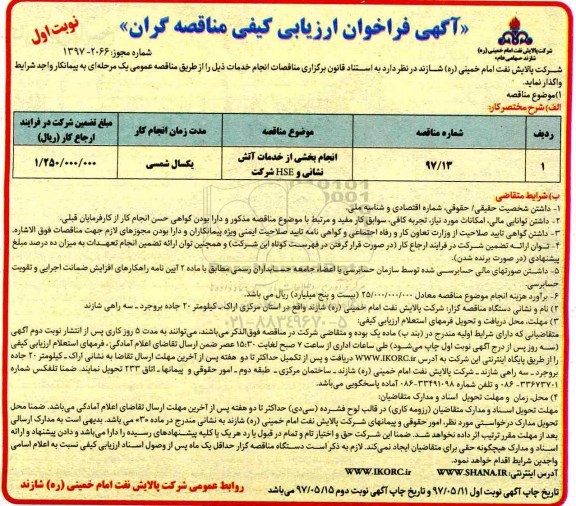 نوبت اول
«آگهی فراخوان ارزیابی کیفی مناقصه گران»
شرکت پالایش نفت امام خمینی (ره)
شازند «سهامی عام»
شماره مجوز: ۲۰۶۶-۱۳۹۷
شرکت پالایش نفت امام خمینی (ره) شازند در نظر دارد به استناد قانون برگزاری مناقصات انجام خدمات ذیل را از طریق مناقصه عمومی یک مرحله‌ای به پیمانکار واجد شرایط
واگذار نماید.
۱) موضوع مناقصه
الف) شرح مختصر کار:
ردیف شماره مناقصه موضوع مناقصه مدت زمان انجام کار مبلغ تضمین شرکت در فرایند ارجاع کار (ریال)
۱ ۹۷/۱۳ انجام بخشی از خدمات آتش نشانی و HSE شرکت یکسال شمسی ۱/۲۵۰/۰۰۰/۰۰۰
ب) شرایط متقاضی
۱- داشتن شخصیت حقیقی/ حقوقی، شماره اقتصادی و شناسه ملی
۲- داشتن توانایی مالی، امکانات مورد نیاز، تجربه کافی، سوابق کار مفید و مرتبط با موضوع مناقصه مذکور و دارا بودن گواهی حسن انجام کار از کارفرمایان قبلی.
۳- داشتن گواهی تایید صلاحیت از وزارت تعاون کار و رفاه اجتماعی و گواهی نامه تایید صلاحیت ایمنی ویژه پیمانکاران و دارا بودن مجوزهای لازم جهت مناقصات فوق الاشاره.
۴- توان ارائه تضمین شرکت در فرایند ارجاع کار (در صورت قرار گرفتن در فهرست کوتاه این شرکت) و همچنین توان ارائه تضمین انجام تعهدات به میزان ده درصد مبلغ
پیشنهادی (در صورت برنده شدن).
۵- داشتن صورتهای مالی حسابرسی شده توسط سازمان حسابرسی یا اعضاء جامعه حسابداران رسمی مطابق با ماده ۲ آیین نامه راهکارهای افزایش ضمانت اجرایی و تقویت
حسابرسی.
۶- برآورد هزینه انجام موضوع مناقصه معادل ۲۵/۰۰۰/۰۰۰/۰۰۰ (بیست و پنج میلیارد) ریال می باشد.
۲) نام و نشانی دستگاه مناقصه گزار: شرکت پالایش نفت امام خمینی (ره) شازند واقع در استان مرکزی اراک- کیلومتر ۲۰ جاده بروجرد- سه راهی شازند
۳) مهلت، محل دریافت و تحویل فرمهای استعلام ارزیابی کیفی:
متقاضیانی که دارای شرایط اولیه مندرج در (بند ب) ماده یک بوده و متقاضی شرکت در مناقصه فوق‌الذکر می‌باشند، می‌توانند به مدت ۵ روز کاری پس از انتشار نوبت دوم آگهی
(سه روز پس از درج آگهی نوبت اول چاپ می‌شود) طی ساعات اداری از ساعت ۷ صبح لغایت ۱۵:۳۰ عصر ضمن ارسال تقاضای اعلام آمادگی، فرمهای استعلام ارزیابی کیفی
را از طریق پایگاه اینترنتی این شرکت به آدرس WWW.IKORC.IR دریافت و پس از تکمیل حداکثر تا دو هفته پس از آخرین مهلت ارسال تقاضا به نشانی اراک- کیلومتر ۲۰ جاده
بروجرد- سه راهی شازند- شرکت پالایش نفت امام خمینی (ره) شازند- ساختمان مرکزی- طبقه دوم- امور حقوقی و پیمانها- اتاق ۲۲۳ تحویل نمایند. ضمنا تلفکس شماره
۳۳۶۷۳۷۰۱-۰۸۶ و تلفن شماره ۳۳۴۹۱۰۹۸-۰۸۶ آماده پاسخگویی می‌باشد.
۴) محل، زمان و مهلت تحویل اسناد و مدارک متقاضیان:
مهلت تحویل اسناد و مدارک متقاضیان (رزومه کاری) در قالب لوح فشرده (سی‌دی) حداکثر تا دو هفته پس از آخرین مهلت ارسال تقاضای اعلام آمادگی می‌باشد. ضمنا محل
تحویل مدارک درخواستی مورد نظر، امور حقوقی و پیمانهای شرکت پالایش نفت امام خمینی (ره) شازند به نشانی مندرج در ماده «۳» می باشد. بدیهی است به مدارک ارسالی
بعد از مهلت مقرر ترتیب اثر داده نخواهد شد. ضمنا این شرکت حق و اختیار تام و تمام در قبول یا رد هر یک یا کلیه پیشنهادهای رسیده را دارا می‌باشد و دادن پیشنهاد و ارائه
اسناد و مدارک هیچگونه حقی برای متقاضیان ایجاد نمی‌کند. لازم به ذکر است دستگاه مناقصه گزار حداقل یک ماه پس از وصول اسناد ارزیابی کیفی نسبت به اعلام اسامی
واجدین شرایط اقدام خواهد نمود.
آدرس اینترنتی: WWW.SHANA.IR WWW.IKORC.ir
تاریخ چاپ آگهی نوبت اول ۹۷/۰۵/۱۱ و تاریخ چاپ آگهی نوبت دوم ۹۷/۰۵/۱۵ می‌باشد
روابط عمومی شرکت پالایش نفت امام خمینی (ره) شازند